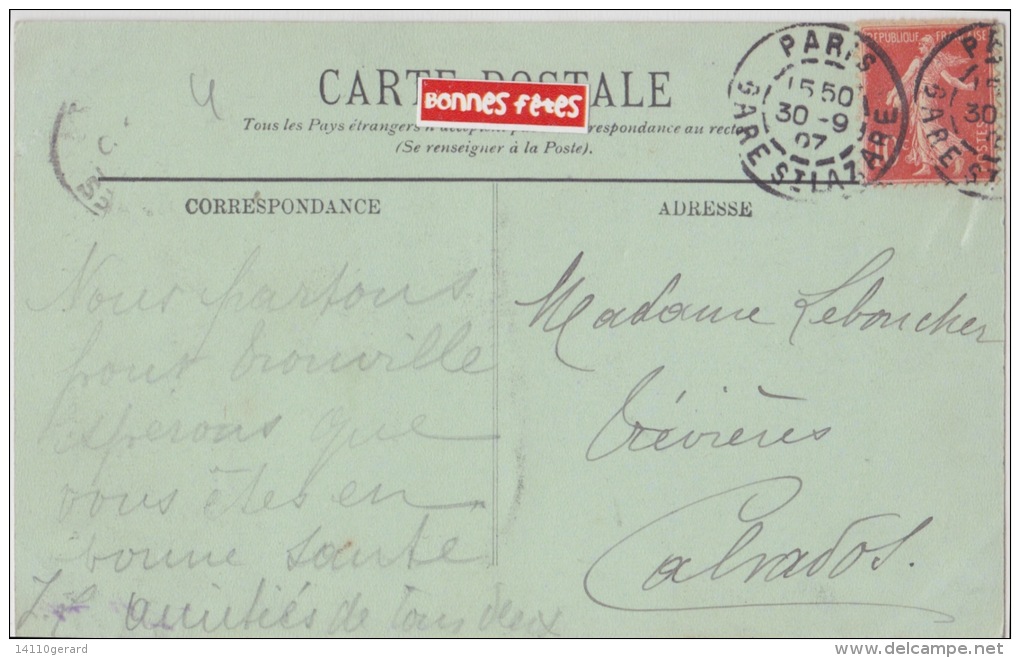 CARTE POSTALE
BONNES FÊTES
Tous les Pays étrangers n'acceptent pas la correspondance au recto
(Se renseigner à la Poste).
PARIS
15 50
30 -9
07
GARE ST LAZARE
REPUBLIQUE FRANÇAISE
POSTES
CORRESPONDANCE
ADRESSE
Nous partons
pour trouville
esperons que
vous êtes en
bonne santé
amitiés de tous deux
Madame Leboucher
trévières
Calvados.
14110gerard
delcampe.net